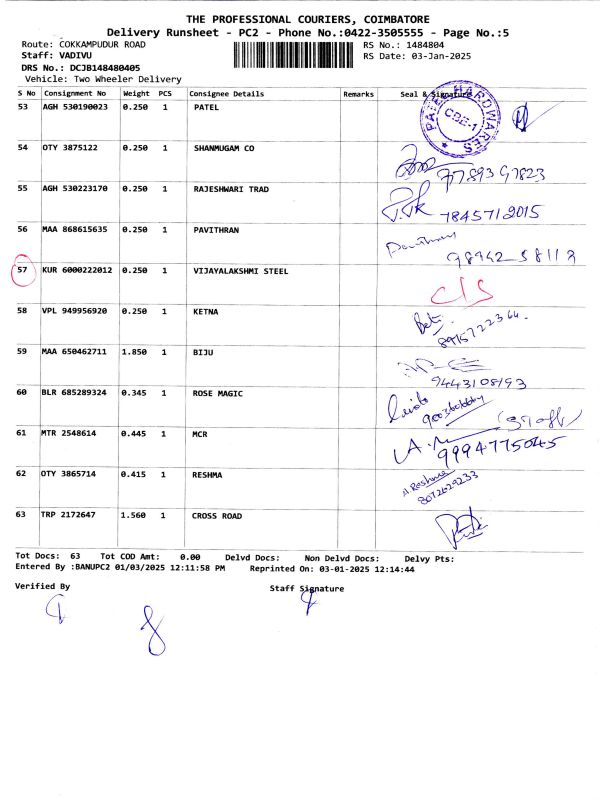 THE PROFESSIONAL COURIERS, COIMBATORE
Delivery Runsheet - PC2 - Phone No.:0422-3505555 - Page No.:5
Route: COKKAMPUDUR ROAD
RS No.: 1484804
Staff: VADIVU
RS Date: 03-Jan-2025
DRS No.: DCJB148480405
Vehicle: Two Wheeler Delivery
S No Consignment No Weight PCS Consignee Details Remarks Seal & Signature
53 AGH 530190023 0.250 1 PATEL
PATEL HARDWARES CBE-1
54 OTY 3875122 0.250 1 SHANMUGAM CO
55 AGH 530223170 0.250 1 RAJESHWARI TRAD
7845712015
56 MAA 868615635 0.250 1 PAVITHRAN
Pavithran
57 KUR 6000222012 0.250 1 VIJAYALAKSHMI STEEL
C/S
58 VPL 949956920 0.250 1 KETNA
8915722364
59 MAA 650462711 1.850 1 BIJU
9443108193
60 BLR 685289324 0.345 1 ROSE MAGIC
61 MTR 2548614 0.445 1 MCR
9994775045
62 OTY 3865714 0.415 1 RESHMA
Reshma
8072629233
63 TRP 2172647 1.560 1 CROSS ROAD
Tot Docs: 63 Tot COD Amt: 0.00 Delvd Docs: Non Delvd Docs: Delvy Pts:
Entered By :BANUPC2 01/03/2025 12:11:58 PM Reprinted On: 03-01-2025 12:14:44
Verified By
Staff Signature